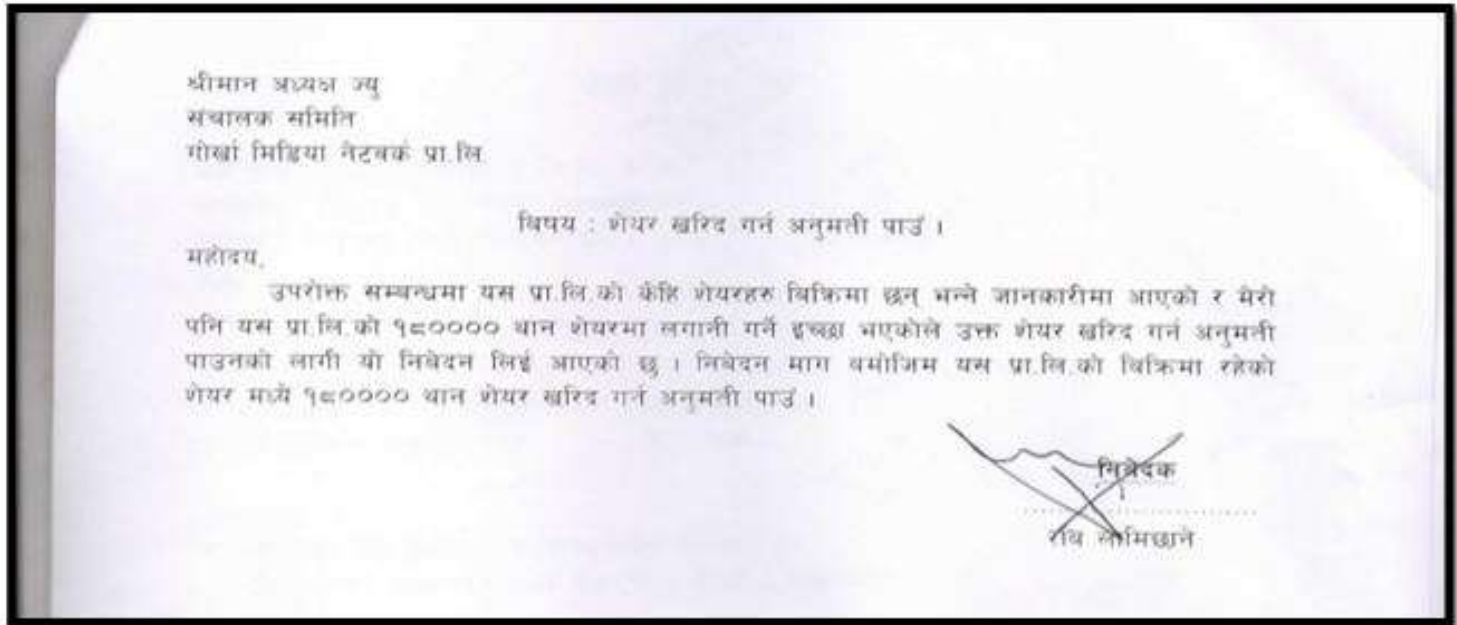 श्रीमान अध्यक्ष ज्यु
संचालक समिति
गोर्खा मिडिया नेटवर्क प्रा.लि.
बिषय : शेयर खरिद गर्न अनुमती पाउँ ।
महोदय,
उपरोक्त सम्बन्धमा यस प्रा.लि.को केहि शेयरहरु बिक्रिमा छन् भन्ने जानकारीमा आएको र मेरो
पनि यस प्रा.लि.को १८०००० थान शेयरमा लगानी गर्ने इच्छा भएकोले उक्त शेयर खरिद गर्न अनुमती
पाउनको लागी यो निबेदन लिई आएको छु । निबेदन माग बमोजिम यस प्रा.लि.को बिक्रिमा रहेको
शेयर मध्ये १८०००० थान शेयर खरिद गर्न अनुमती पाउं ।
निबेदक
रवि लामिछाने